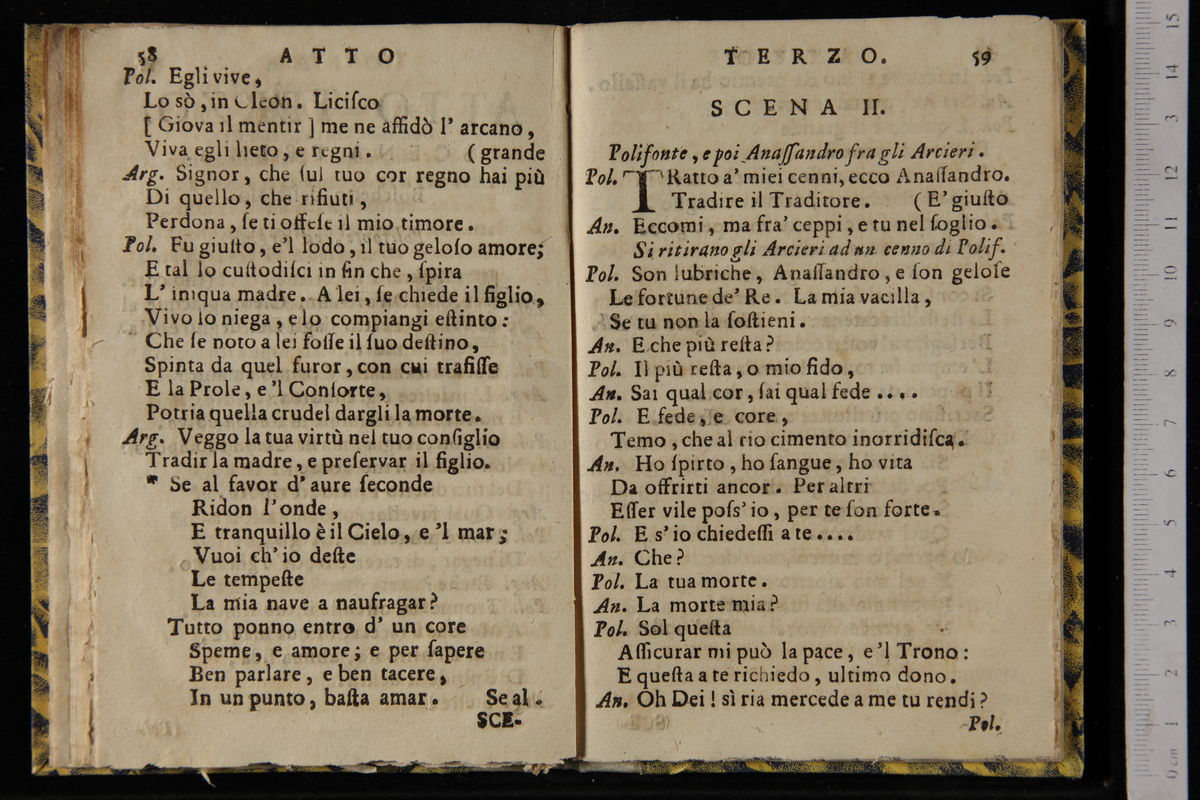 58 ATTO
Pol. Egli vive,
Lo sò, in Cleon. Liciſco
[ Giova il mentir ] me ne affidò l' arcano,
Viva egli lieto, e regni. (grande
Arg. Signor, che ſul tuo cor regno hai più
Di quello, che rifiuti,
Perdona, ſe ti offeſe il mio timore.
Pol. Fu giuſto, e'l lodo, il tuo geloſo amore;
E tal lo cuſtodiſci in fin che, ſpira
L' iniqua madre. A lei, ſe chiede il figlio,
Vivo lo niega, e lo compiangi eſtinto:
Che ſe noto a lei foſſe il ſuo deſtino,
Spinta da quel furor, con cui trafiſſe
E la Prole, e 'l Conſorte,
Potria quella crudel dargli la morte.
Arg. Veggo la tua virtù nel tuo conſiglio
Tradir la madre, e preſervar il figlio.
* Se al favor d' aure ſeconde
Ridon l' onde,
E tranquillo è il Cielo, e 'l mar;
Vuoi ch' io deſte
Le tempeſte
La mia nave a naufragar?
Tutto ponno entro d' un core
Speme, e amore; e per ſapere
Ben parlare, e ben tacere,
In un punto, baſta amar. Se al.
SCE-
TERZO. 59
SCENA II.
Polifonte, e poi Anaſſandro fra gli Arcieri.
Pol. TRatto a' miei cenni, ecco Anaſſandro.
Tradire il Traditore. (E' giuſto
An. Eccomi, ma fra' ceppi, e tu nel ſoglio.
Si ritirano gli Arcieri ad un cenno di Polif.
Pol. Son lubriche, Anaſſandro, e ſon geloſe
Le fortune de' Re. La mia vacilla,
Se tu non la ſoſtieni.
An. E che più reſta?
Pol. Il più reſta, o mio fido,
An. Sai qual cor, ſai qual fede ....
Pol. E fede, e core,
Temo, che al rio cimento inorridiſca.
An. Ho ſpirto, ho ſangue, ho vita
Da offrirti ancor. Per altri
Eſſer vile poſs' io, per te ſon forte.
Pol. E s' io chiedeſſi a te ....
An. Che?
Pol. La tua morte.
An. La morte mia?
Pol. Sol queſta
Aſſicurar mi può la pace, e 'l Trono:
E queſta a te richiedo, ultimo dono.
An. Oh Dei! sì ria mercede a me tu rendi?
Pol.
0 cm 1 2 3 4 5 6 7 8 9 10 11 12 13 14 15